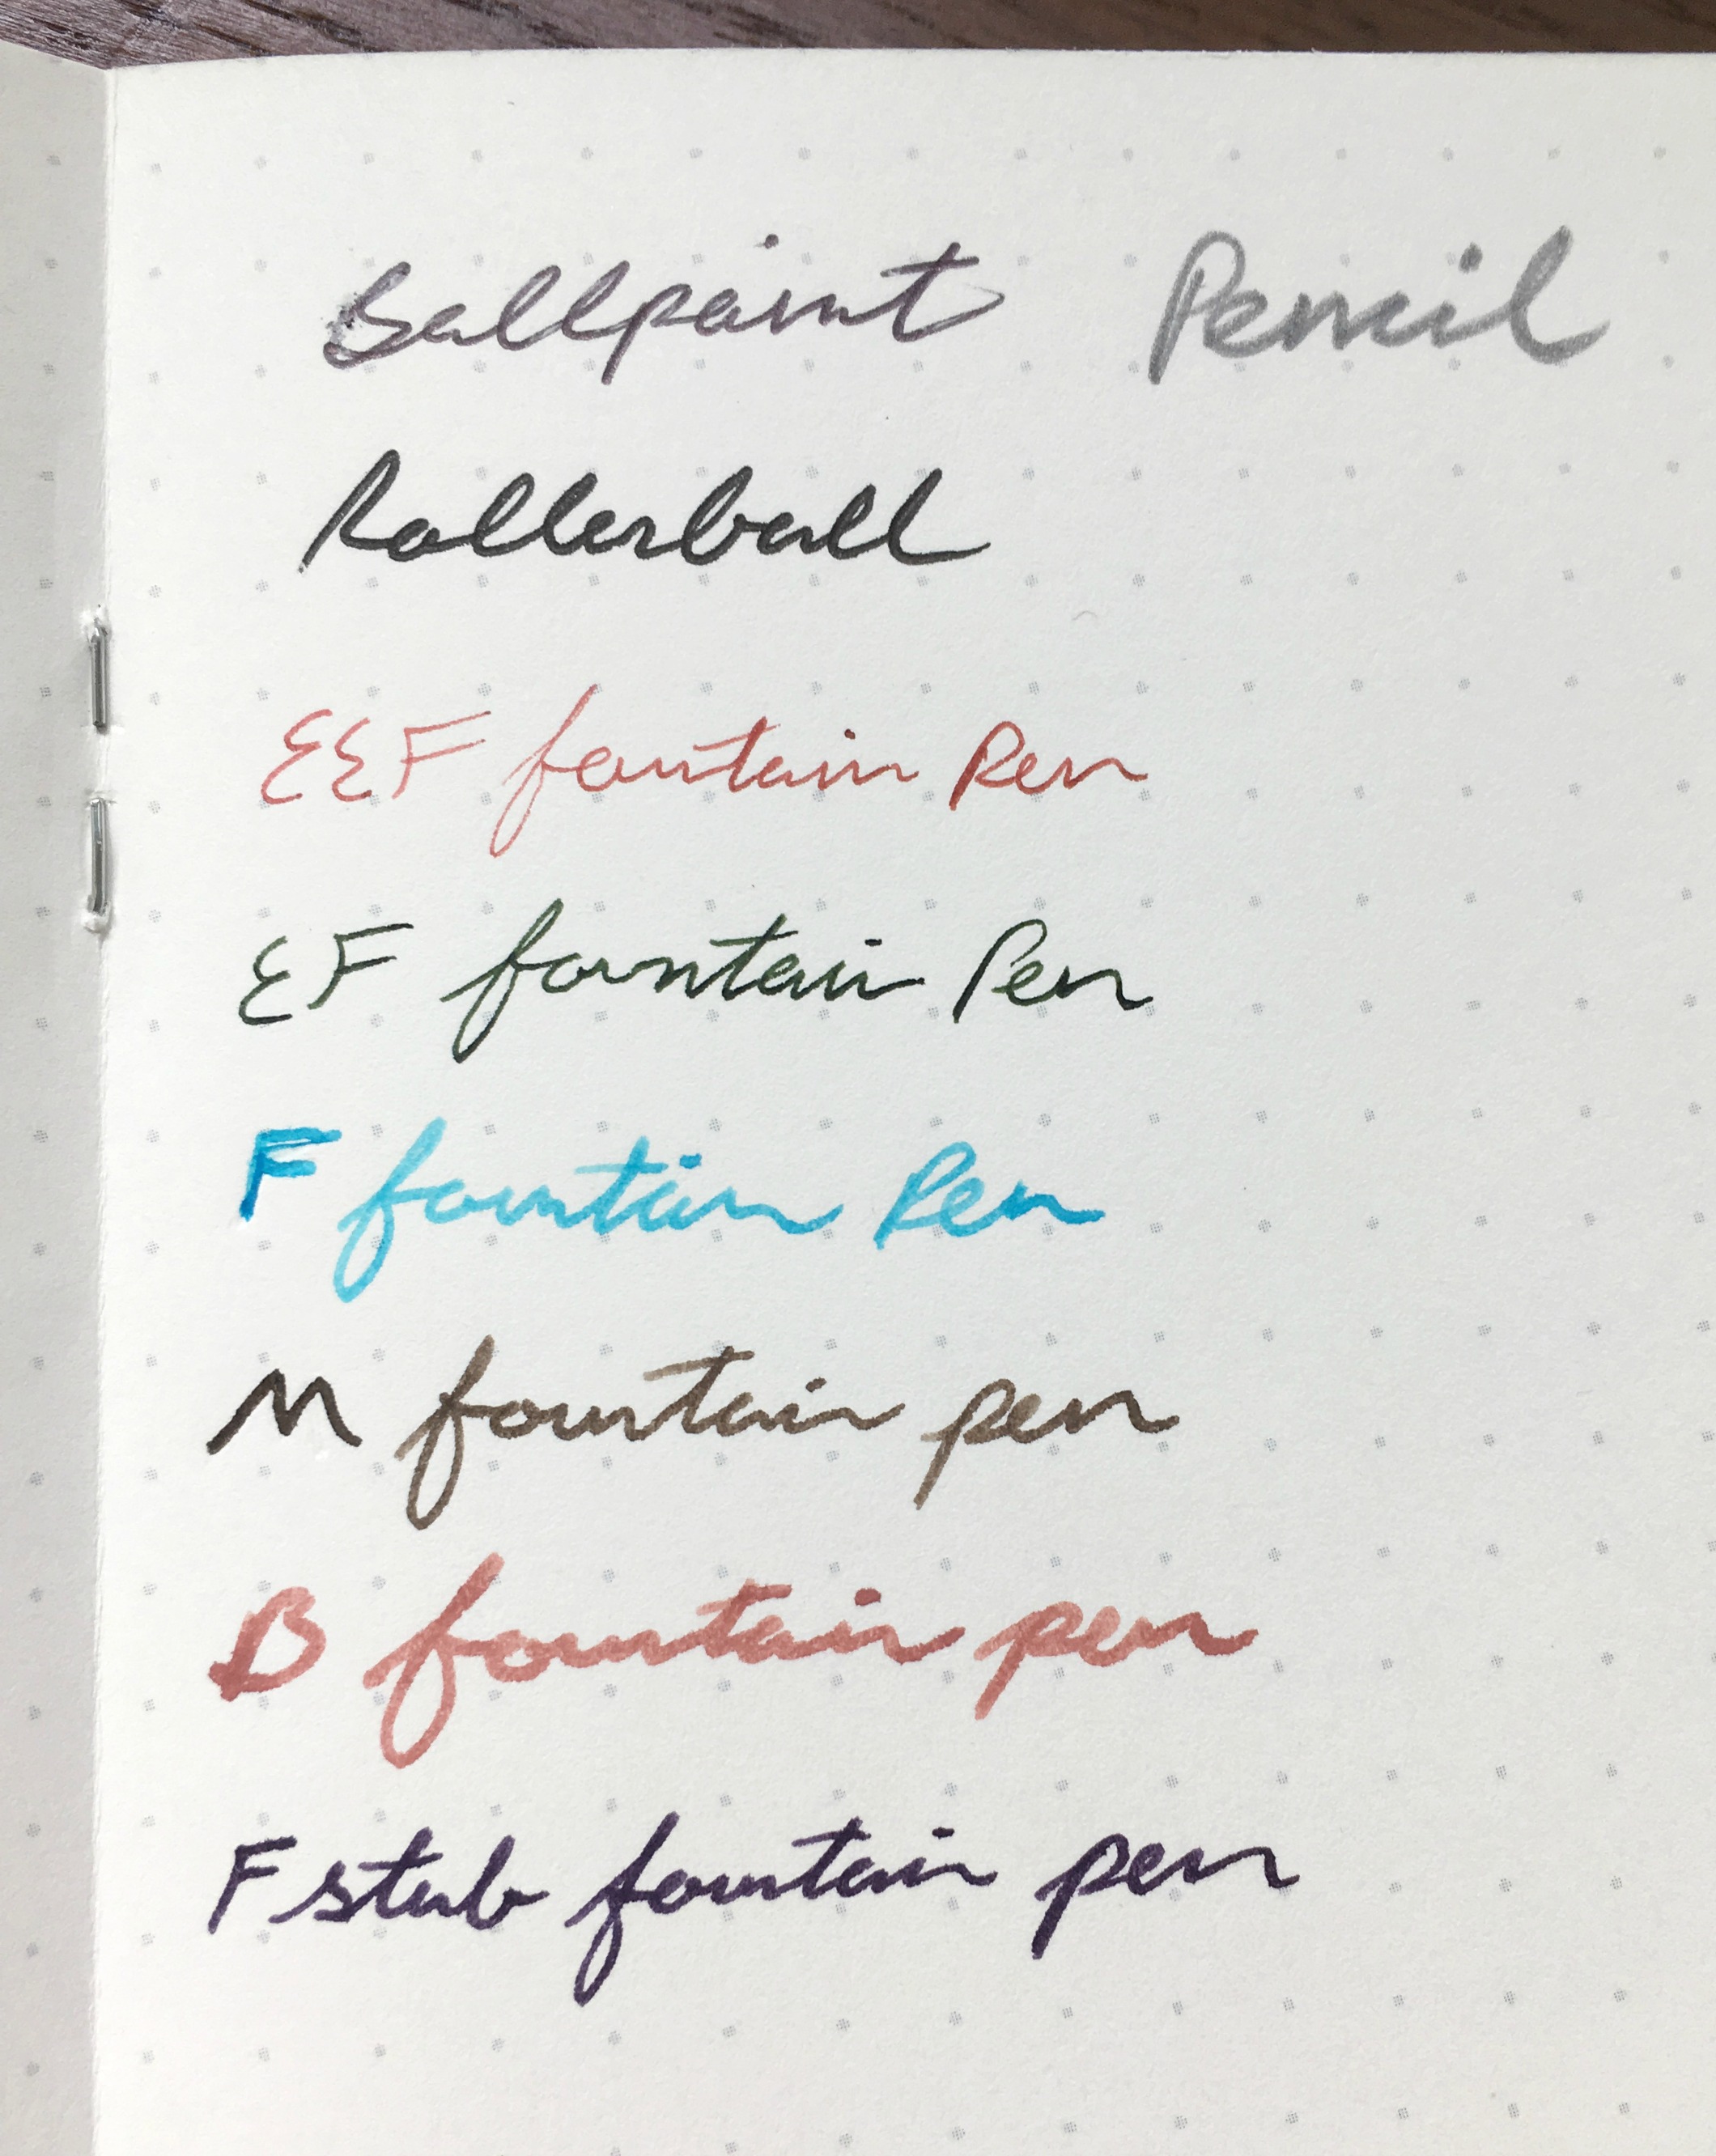 Ballpoint Pencil
Rollerball
EEF fountain Pen
EF fountain Pen
F fountain Pen
M fountain pen
B fountain pen
F stub fountain pen